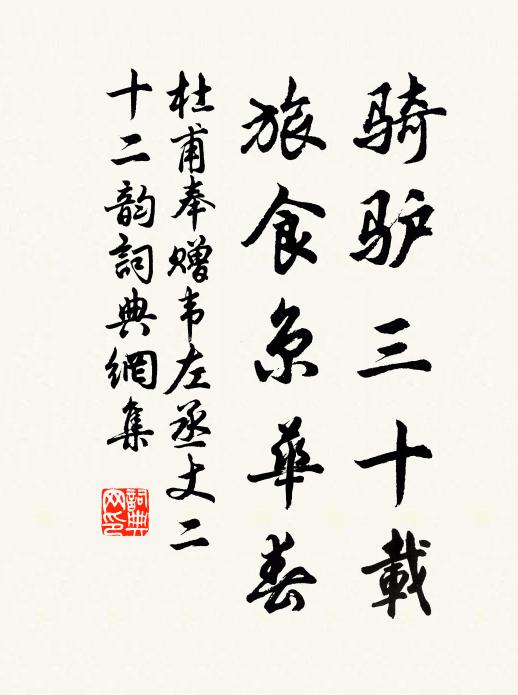 骑驴三十載
旅食京華春
杜甫奉赠韦左丞丈二
十二韵詞典網集
詞典
网印